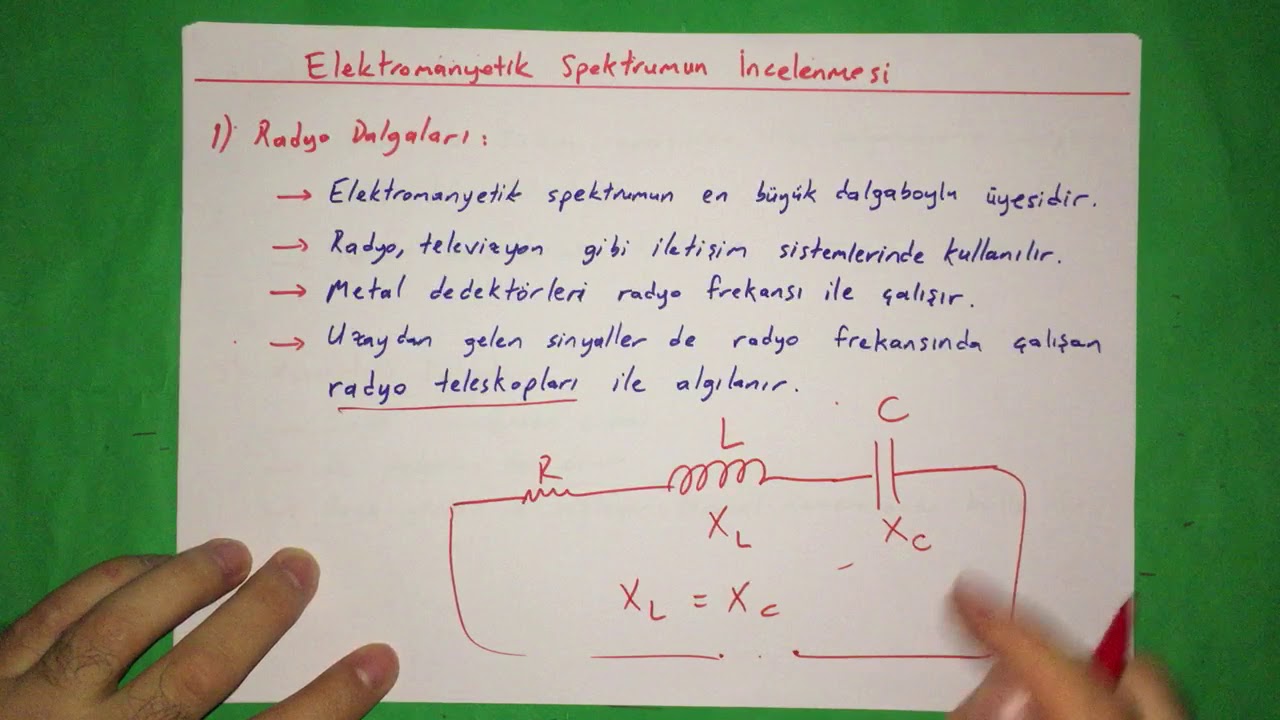 Elektromanyetik Spektrumun İncelenmesi
1) Radyo Dalgaları:
→ Elektromanyetik spektrumun en büyük dalgaboylu üyesidir.
→ Radyo, televizyon gibi iletişim sistemlerinde kullanılır.
→ Metal dedektörleri radyo frekansı ile çalışır.
→ Uzaydan gelen sinyaller de radyo frekansında çalışan
radyo teleskopları ile algılanır.
R L C
X_L X_C
X_L = X_C